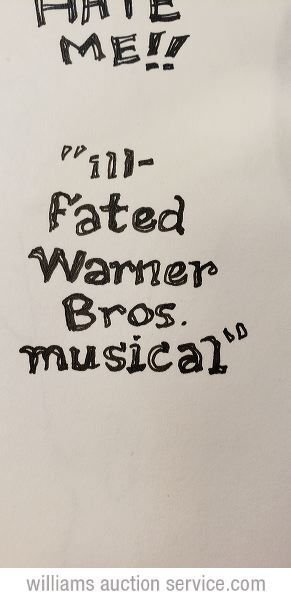 HATE
ME!!
"ill-
fated
Warner
Bros.
musical"
williams auction service.com